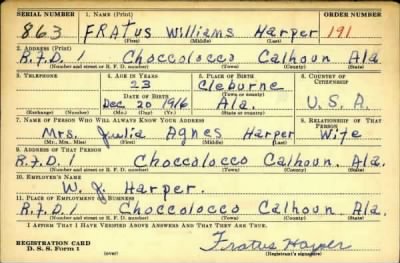 SERIAL NUMBER 1. NAME (Print) ORDER NUMBER
863 FRATUS Williams Harper 191
(First) (Middle) (Last)
2. ADDRESS (Print)
R.F.D. 1 Choccolocco Calhoun Ala.
(Number and street or R. F. D. number) (Town) (County) (State)
3. TELEPHONE 4. AGE IN YEARS 5. PLACE OF BIRTH 6. COUNTRY OF CITIZENSHIP
23 Cleburne
(Town or county)
DATE OF BIRTH
Dec 20 1916 Ala. U.S.A.
(Exchange) (Number) (Mo.) (Day) (Yr.) (State or country)
7. NAME OF PERSON WHO WILL ALWAYS KNOW YOUR ADDRESS 8. RELATIONSHIP OF THAT PERSON
Mrs. Julia Agnes Harper Wife
(Mr., Mrs., Miss) (First) (Middle) (Last)
9. ADDRESS OF THAT PERSON
R.F.D. 1 Choccolocco Calhoun, Ala.
(Number and street or R. F. D. number) (Town) (County) (State)
10. EMPLOYER'S NAME
W. J. Harper.
11. PLACE OF EMPLOYMENT OR BUSINESS
R.F.D. 1 Choccolocco Calhoun Ala.
(Number and street or R. F. D. number) (Town) (County) (State)
I AFFIRM THAT I HAVE VERIFIED ABOVE ANSWERS AND THAT THEY ARE TRUE.
REGISTRATION CARD
D. S. S. Form 1 (over) Fratus Harper
(Registrant's signature)